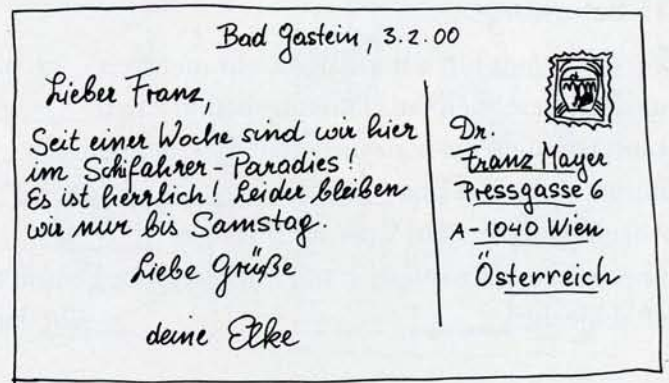 Bad Gastein, 3.2.00
Lieber Franz,
Seit einer Woche sind wir hier
im Schifahrer-Paradies!
Es ist herrlich! Leider bleiben
wir nur bis Samstag.
Liebe Grüße
deine Elke
Dr.
Franz Mayer
Pressgasse 6
A-1040 Wien
Österreich